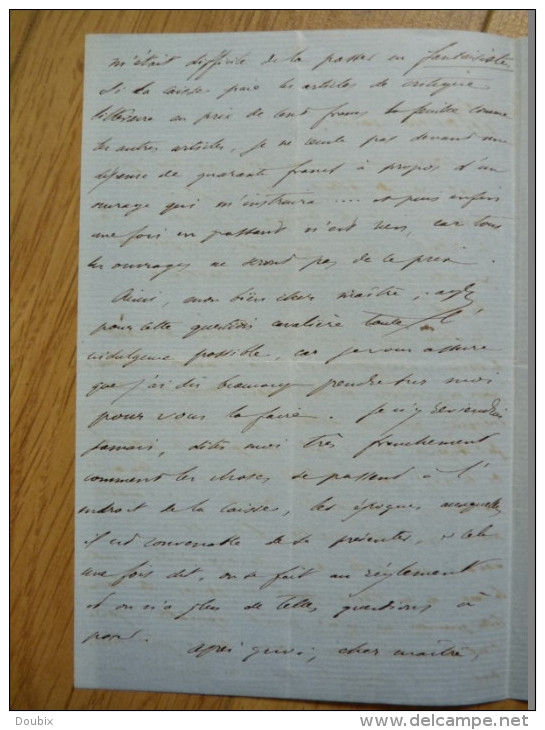 m'était difficile de la passer en fantaisiste
si la caisse paie les articles de critique
littéraire au prix de cent francs la feuille comme
les autres articles, je ne recule pas devant une
dépense de quarante francs à propos d'un
ouvrage qui m'instruira .... et puis enfin
une fois en passant n'est rien, car tous
les ouvrages ne seront pas de ce prix.
Ainsi, mon bien cher maître, ayez
pour cette question cavalière toute l'
indulgence possible, car je vous assure
que j'ai dû beaucoup prendre sur moi
pour vous la faire. Je n'y reviendrai
jamais, dites moi très franchement
comment les choses se passent à l'
endroit de la caisse, les époques auxquelles
il est convenable de se présenter, et cela
une fois dit, on se fait au règlement
et on n'a plus de telles questions à
poser.
après quoi, cher maître,
Doubix
www.delcampe.net